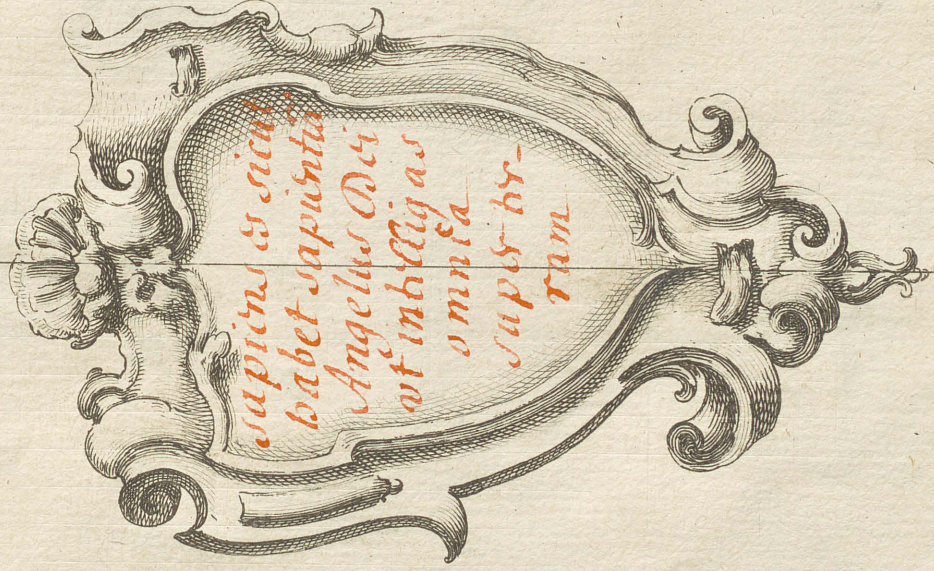 sapiens es sicut
habet sapientiā
Angelus Dei
vt intelligas
omnia
super ter-
ram